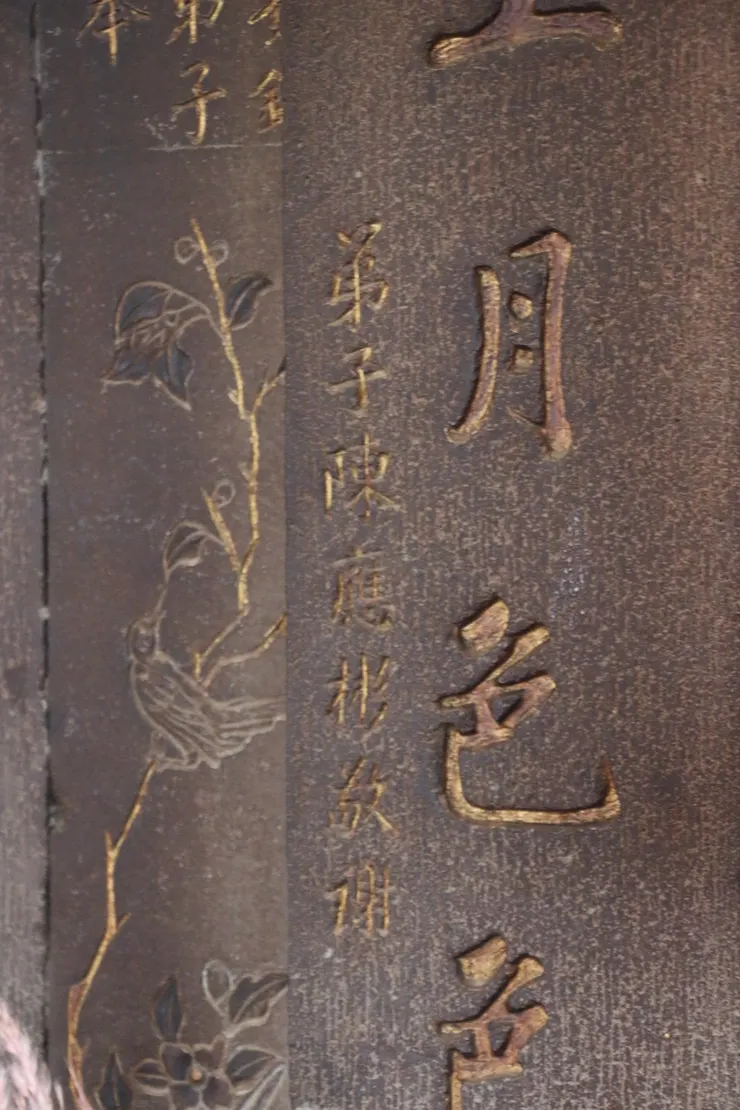 月色色
弟子陳應彬敬謝
弟子
本